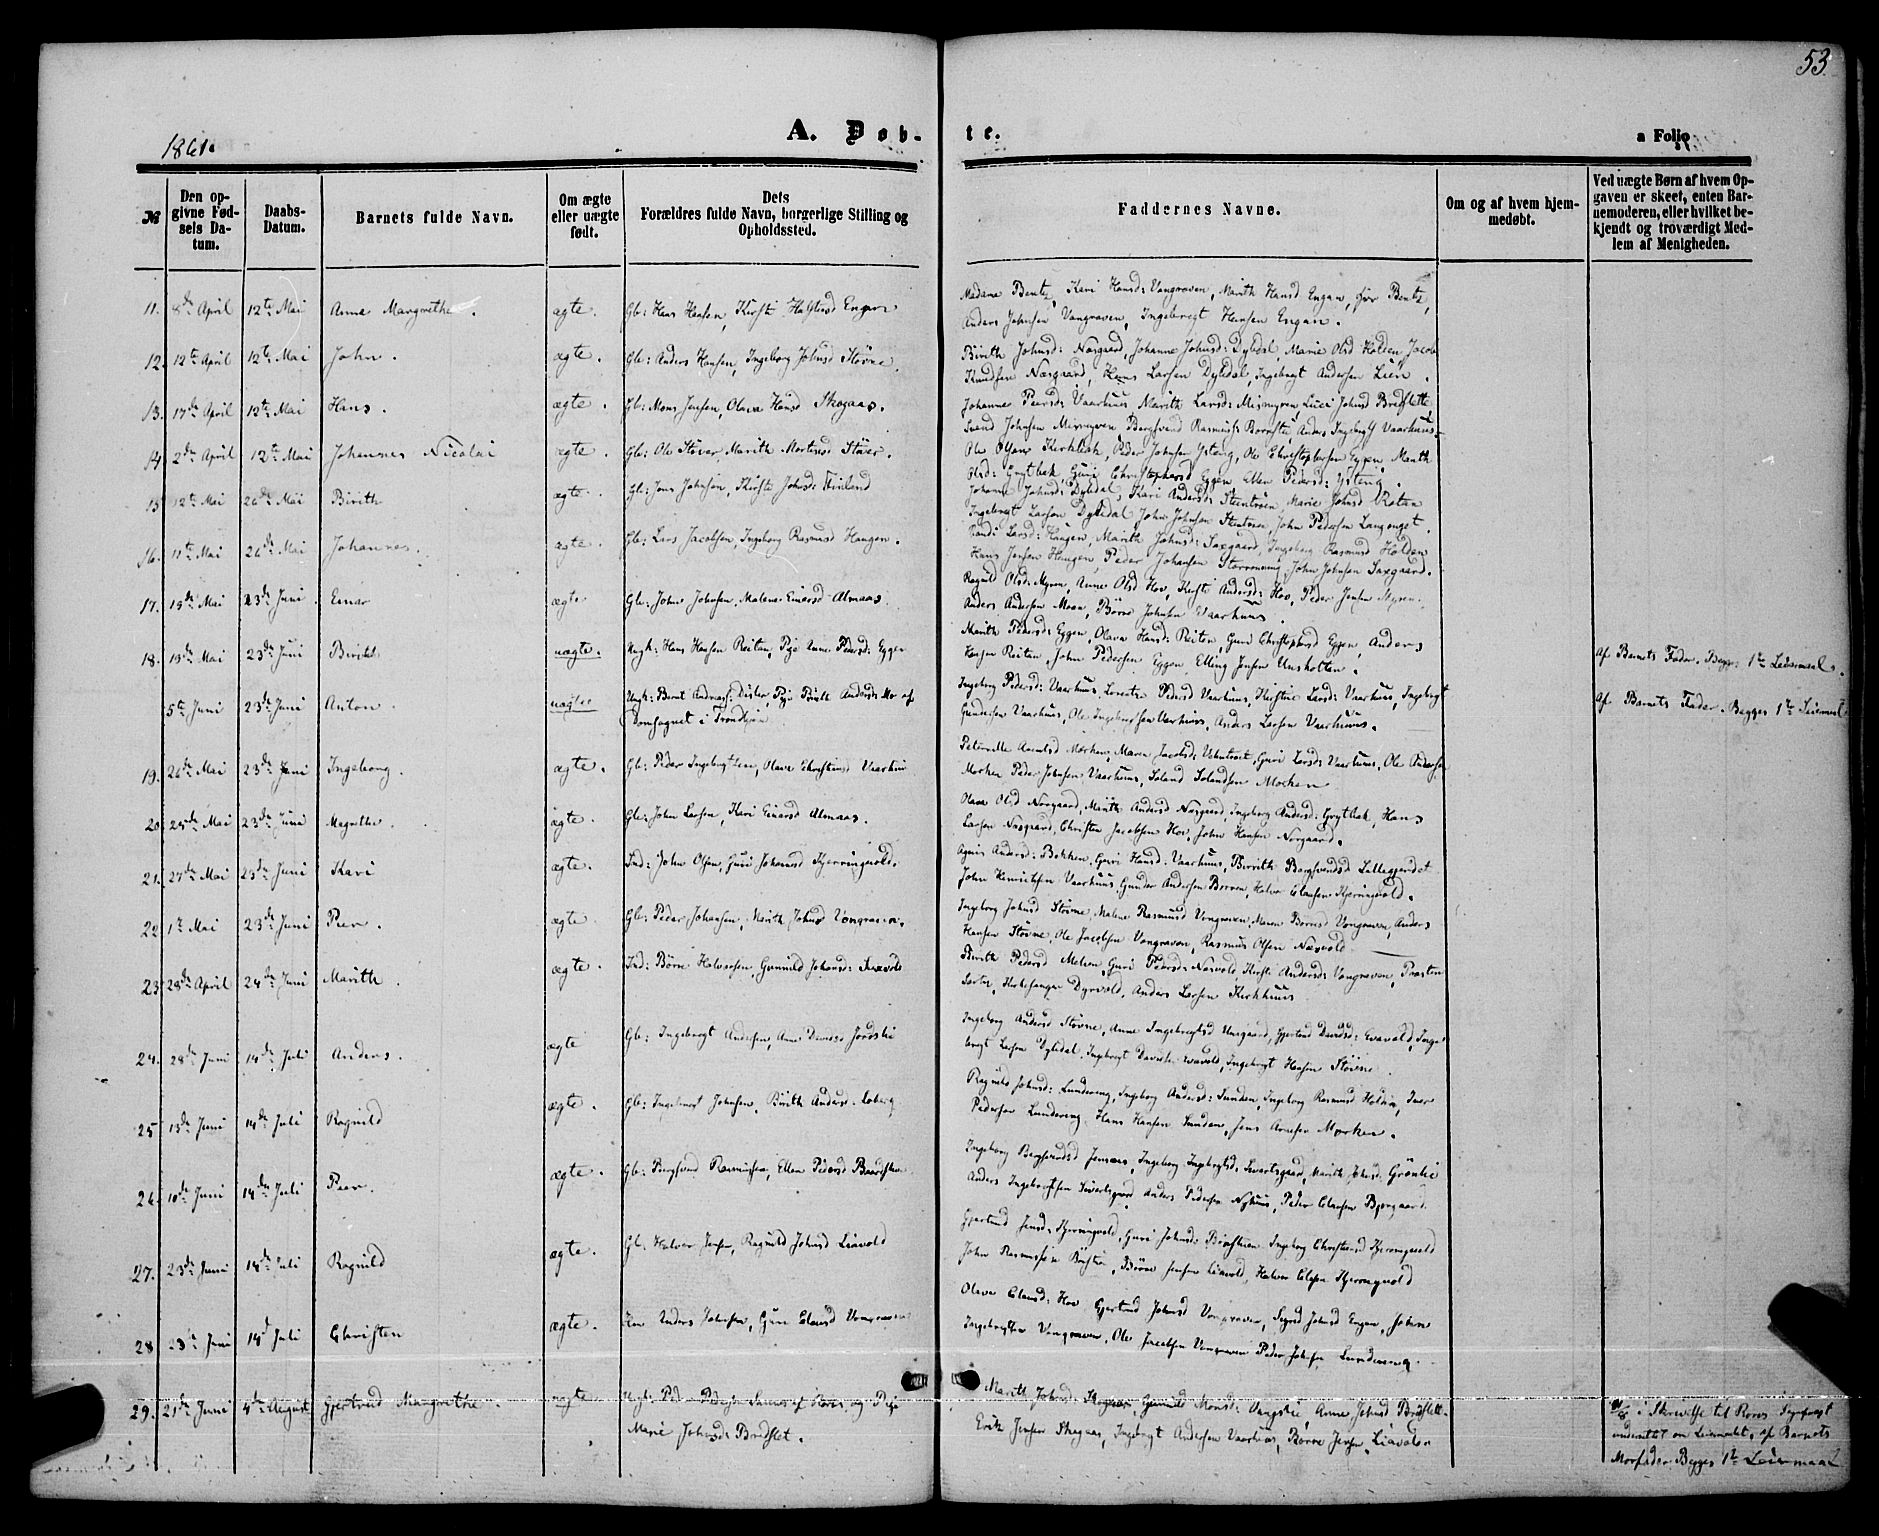 53
1861.
A. Døb-
te.
a Folio
№
Den op-
givne Fød-
sels Da-
tum.
Daabs-
Datum.
Barnets fulde Navn.
Om ægte
eller uægte
født.
Dets
Forældres fulde Navn, borgerlige Stilling og
Opholdssted.
Faddernes Navne.
Om og af hvem hjem-
medøbt.
Ved uægte Børn af hvem Op-
gaven er skeet, enten Bar-
nemoderen, eller hvilket be-
kjendt og troværdigt Med-
lem af Menigheden.
11. 8de April 12te Mai Anne Margrethe. ægte. Gb: Hans Hansen, Kirsti Halstensd Engan
Madame Bentz, Kari Hansd: Vongraven, Marith Hansd Engan, Hr Bentz,
Anders Johnsen Vongraven, Ingebregt Hansen Engan.
12. 12te April 12te Mai John. ægte. Gb: Anders Hansen, Ingeborg Johnsd Støvne.
Birith Johnsd: Nasgaard, Johanne Johnsd: Dyldal, Marie Olsd Holden, Jacob
Knudsen Nasgaard, Hans Larsen Dyldal, Ingebregt Andersen Lien.
13. 17de April 12te Mai Hans. ægte. Gb: Mons Jensen, Olava Hansd Skogaas.
Johanne Peersd: Vaarhuus Marith Larsd: Mismyren, Lucci Johnsd Bredslette
Svend Johnsen Mismyren Bergsvend Rasmusf: Anders Ingebregtf Vaarhuus.
14 2de April 12te Mai Johannes Nicolai ægte. Gb: Ole Støver Marith Mortensd Støver.
Ole Olsen Kirkbak, Peder Johnsen Ysteng, Ole Christophersen Eggen, Marith
Olsd: Grytbak, Guri Christophersd Eggen Ellen Pedersd: Ysteng.
15 12te Mai 26de Mai Birith ægte. Gb: Jens Johnsen, Kirsti Johnsd: Finland
Johanne Johnsd: Dyldal, Kari Andersd: Stentrøen, Marie Johnsd Roten
Ingebregt Larsen Dyldal, John Johnsen Stentrøen, John Pedersen Langenget.
16. 11te Mai 26de Mai Johannes. ægte. Gb: Lars Jacobsen, Ingeborg Rasmusd Haugen.
Randi Larsd: Haugen, Marith Johnsd: Saxgaard, Ingeborg Rasmusd Holden
Hans Jensen Haugen, Peder Johansen Storrønning, John Johnsen Saxgaard.
17. 19de Mai 23de Juni Einar ægte Gb: John Johnsen, Malene Einarsd Almaas.
Ragnild Olsd: Myren, Anne Olsd Hov, Kirsti Andersd: Hov, Peder Jensen Myren.
Anders Andersen Moen, Børre Johnsen Vaarhuus.
18. 19de Mai 23de Juni Birith uægte. Ungk: Hans Hansen Reitan, Pige Anne Pedersd: Eggen
Marith Pedersd: Eggen, Olava Hansd: Reiten, Guri Christophersd Eggen, Anders
Hansen Reitan, John Pedersen Eggen Elling Jensen Unsholten.
Af Barnets Fader. Begges 1te Leiermaal.
5te Juni 23de Juni Anton. uægte Ungk: Bernt Andreas: Pige Andersd: Mo af
i Trondhjem
Ingeborg Pedersd: Vaarhuus, Lorentse Pedersd Vaarhuus, Kirstine Larsd: Vaarhuus, Ingebregt
Gundersen Vaarhuus, Ole Ingebregtsen Vaarhuus, Anders Larsen Vaarhuus.
Af Barnets Fader. Begges 1te Leiermaal
19. 26de Mai 23de Juni Ingeborg. ægte. Gb: Peder Ingebregtsen, Olava Christensd Vaarhuus
Petronelle Morken, Maren Jacobsd: Guri Larsd: Vaarhuus, Ole Andersen
Morken Peder Johnsen Vaarhuus, Morken
20 25de Mai 23de Juni Magrethe. ægte. Gb: John Larsen, Kari Einarsd Almaas.
Olava Olsd Norgaard, Marith Andersd Nasgaard, Ingeborg Andersd: Grytbak, Hans
Larsen Nasgaard, Christen Jacobsen Hov, John Hansen Norgaard.
21. 27de Mai 23de Juni Kari ægte. Ind: John Olsen, Guri Johansd Kjerringvold.
Agnis Andersd: Bakken, Guri Hansd: Vaarhuus, Berith Bergsvendsd Lillegjerdet
John Henrichsen Vaarhuus Gunder Andersen Borren, Halvor Clausen Kjeringvold.
22 1te Mai 23de Juni Peer. ægte. Gb: Peder Johansen, Marith Johnsd Vongraven.
Ingeborg Johnsd Støvne, Malene Rasmusd Vongraven, Maren Berntsd Vongraven, Anders
Hansen Støvne, Ole Jacobsen Vongraven, Rasmus Olsen Næsvold
23 28de April 24de Juni Marith. ægte. Ind: Børre Halvorsen, Gunnild Johansd:
Birith Pedersd Melien, Guri Pedersd: Næsvold, Kirsti Andersd: Vongraven, Præsten
Kirkesanger Dyrvold, Anders Larsen Kirkhuus
24. 28de Juni 14de Juli Anders. ægte Gb: Ingebregt Andersen, Anne
Ingeborg Andersd Støvne, Anne Ingebregtsd Unsgaard, Gjertrud Davidsd: Evavold, Inge-
bregt Larsen Dyldal, Ingebregt Davidsen Evavold, Ingebregt Hansen Støvne.
25 13de Juni 14de Juli Ragnild ægte. Gb: Ingebregt Johnsen, Birith Andersd.
Ragnild Johnsd: Lundereng, Ingeborg Andersd: Sunden, Ingeborg Rasmusd Holden, Iver
Pedersen Lundereng Hans Hansen Sunden, Jens Arntsen Morken.
26. 10de Juni 14de Juli Peer. ægte. Gb: Bergsvend Rasmussen, Ellen Pedersd
Ingeborg Bergsvendsd Jensaas, Ingeborg Ingebregtsd: Svartsgaard, Marith Johnsd: Grønlie
Anders Ingebregtsen Anders Pedersen Nyhuus, Peder Clausen Bjørgaard.
27. 23de Juni 14de Juli Ragnild ægte. Gb: Halvor Jensen, Ragnild Johnsd Liavold
Gjertrud Jensd: Kjeringvold, Guri Johnsd: Ingeborg Christensd Kjerringvold
John Rasmussen Børre Jensen Liavold, Halvor Clausen Kjeringvold
28 23de Juni 14de Juli Christen ægte. Anders Johnsen, Guri Clausd Vongraven
Olava Clausd: Hov Gjertrud Johnsd Vongraven, Sigrid Johnsd Engan, John
Ingebregtsen Vongraven, Ole Jacobsen Vongraven Peder Johnsen Lundereng.
29. 21de Juni 4de August Gjertrud Margrethe. ægte Ungk: og Pige
Marie Johnsd: Bredslet.
Marith Johnsd: Skogaas Gunild Monsd: Vangslie, Anne Johnsd Bredslett
Erik Jensen Skogaas, Ingebregt Andersen Vaarhuus, Børre Jensen Liavold.
i Skrivelse til Røros
om Leiermaalet, af Barnets
Morfader. Begges 1te Leiermaal